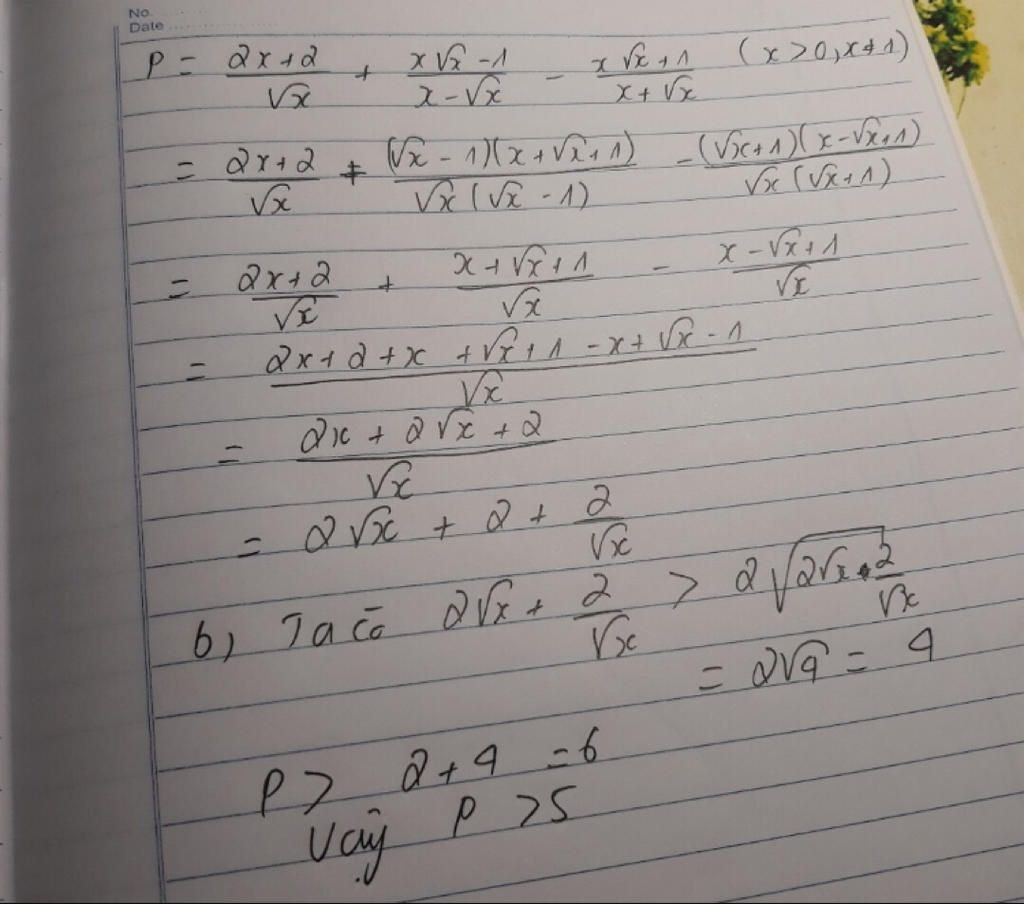 No.
Date
P = \frac{2x+2}{\sqrt{x}} + \frac{x\sqrt{x}-1}{x-\sqrt{x}} - \frac{x\sqrt{x}+1}{x+\sqrt{x}} (x>0, x≠1)
= \frac{2x+2}{\sqrt{x}} + \frac{(\sqrt{x}-1)(x+\sqrt{x}+1)}{\sqrt{x}(\sqrt{x}-1)} - \frac{(\sqrt{x}+1)(x-\sqrt{x}+1)}{\sqrt{x}(\sqrt{x}+1)}
= \frac{2x+2}{\sqrt{x}} + \frac{x+\sqrt{x}+1}{\sqrt{x}} - \frac{x-\sqrt{x}+1}{\sqrt{x}}
= \frac{2x+2+x+\sqrt{x}+1-x+\sqrt{x}-1}{\sqrt{x}}
= \frac{2x+2\sqrt{x}+2}{\sqrt{x}}
= 2\sqrt{x} + 2 + \frac{2}{\sqrt{x}}
b) Ta có 2\sqrt{x} + \frac{2}{\sqrt{x}} > 2\sqrt{2\sqrt{x} \cdot \frac{2}{\sqrt{x}}}
= 2\sqrt{4} = 4
P > 2+4 = 6
Vậy P > 5